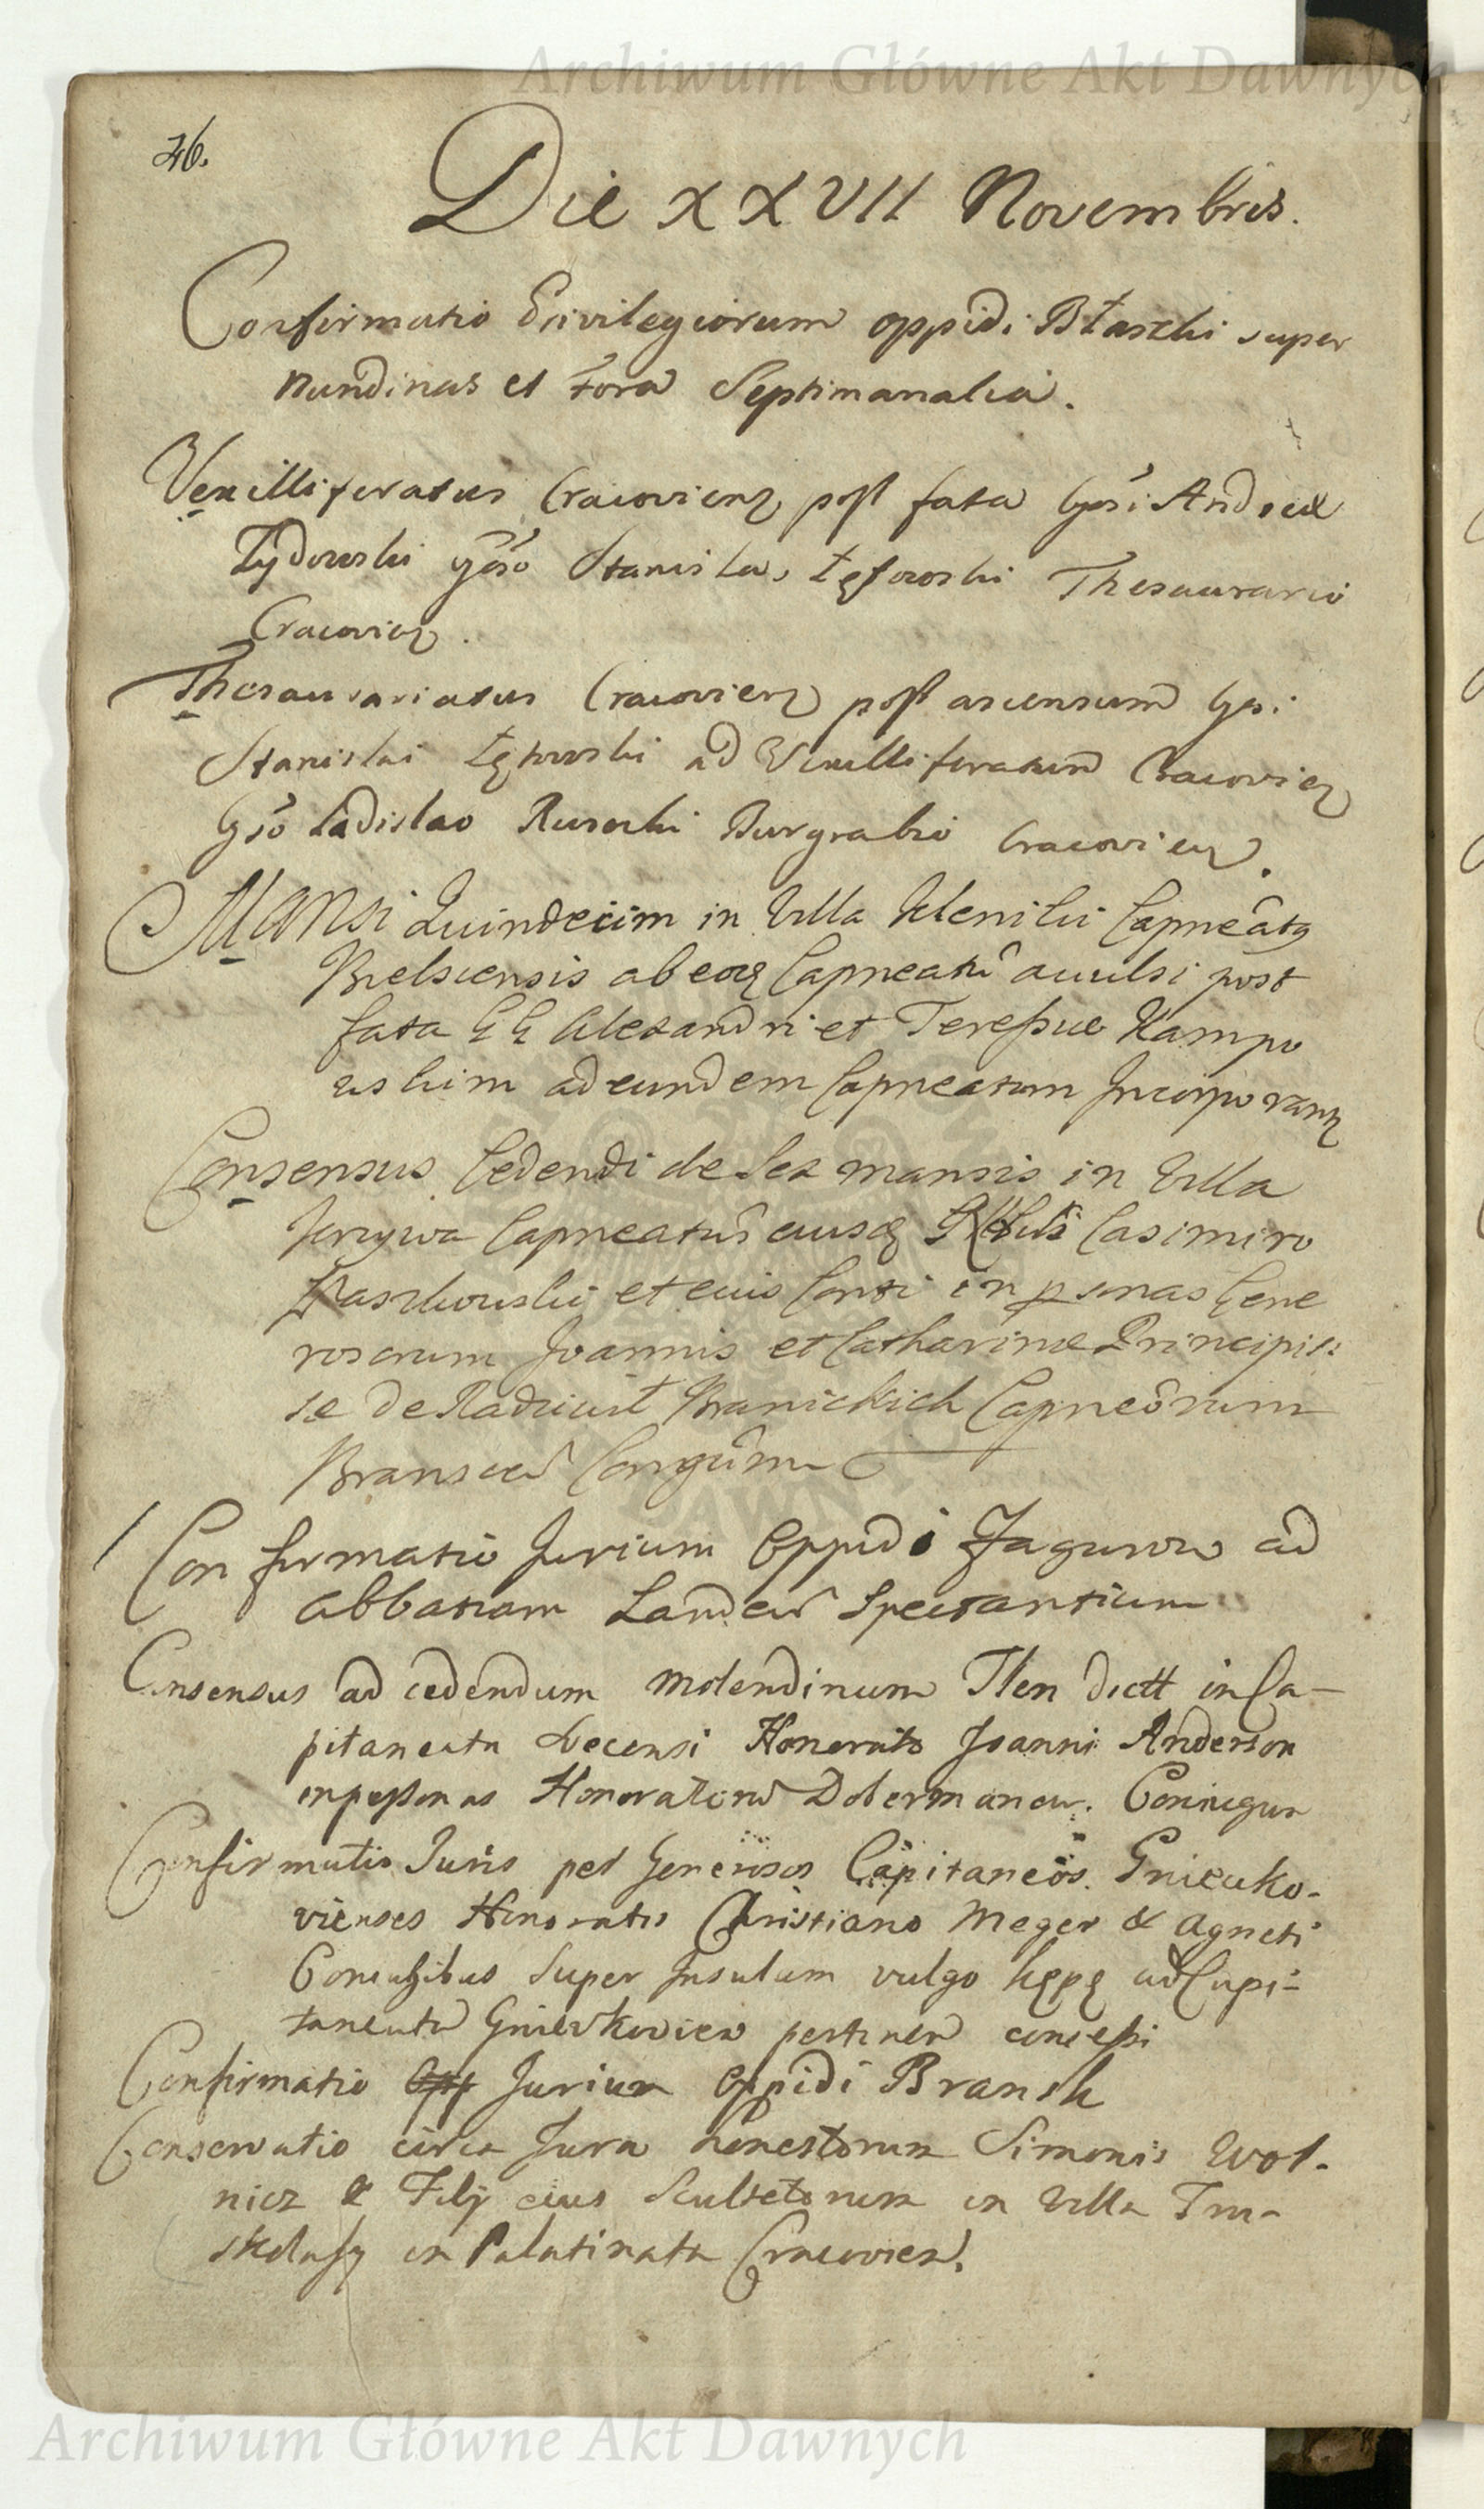 Archiwum Główne Akt Dawnych
46.
Die XXVII Novembris.
Confirmatio Privilegiorum oppidi Błaszki super
nundinas et fora Septimanalia.
Vexilliferatus Cracovien post fata Gosi Andreæ
Żydowski Goso Stanislao Łętowski Thesaurario
Cracovien.
Thesaurariatus Cracovien post ascensum Gsi
Stanislai Łętowski ad Vexilliferatum Cracovien
Gso Ladislao Rusocki Burgrabio Cracovien.
Mansi Quindecim in Villa Kleniki Capneatg
Bielscensis ab eoq Capneatu avulsi post
fata GG Alexandri etTeressiæ Kampo
ad eundem Capneatum Incorporant
Consensus Cedendi de Sex mansis in Villa
Capneatus eiusq Casimiro
Paszkowski et eius Conti in psonas Gene
rosorum Joannis et Catharinæ Principis:
sæ de Radziwił Branickich Capneorum
Branscen Congum
Confirmatio Jurium Oppidi Zagurow ad
abbatiam Landen Spectantium
Consensus ad cedendum molendinum Tlen dictt in Ca-
pitaneatu Honorato Joanni Anderson
in personas Honoratorum Dobermanow. Coniugum
Confirmatio Juris per Generosos Capitaneos Gniewko-
vienses Honoratis Christiano Meger & Agneti
Coniugibus Super Insulam vulgo kępę ad Capi-
taneatu Gniewkovien pertinen concessi
Confirmatio Jurium Oppidi Bransk
Conservatio circa Jura honestorum Simonis Wol-
nicz & Filij eius Scultetorum in Villa Tru-
skolasy in Palatinatu Cracovien.
Archiwum Główne Akt Dawnych